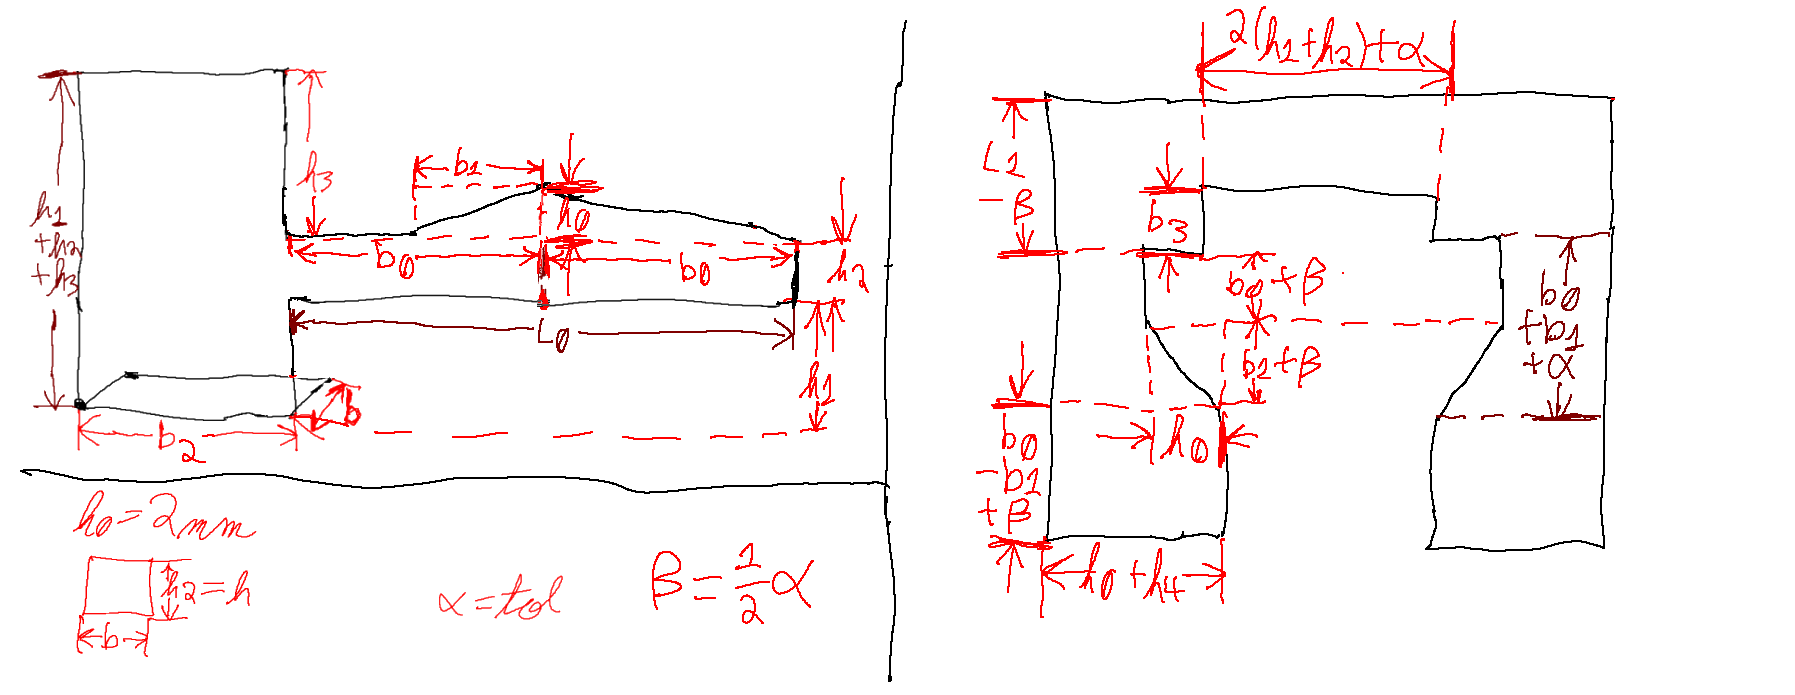 h1
+h2
+h3
h3
b1
hø
bø
bø
h2
Lø
h1
b
b2
hø=2mm
h2=h
b
α=tol
β=1/2α
2(h1+h2)+α
L1
-β
b3
bø+β
b1+β
bø
+b1
+α
bø
-b1
+β
hø
hø+h4